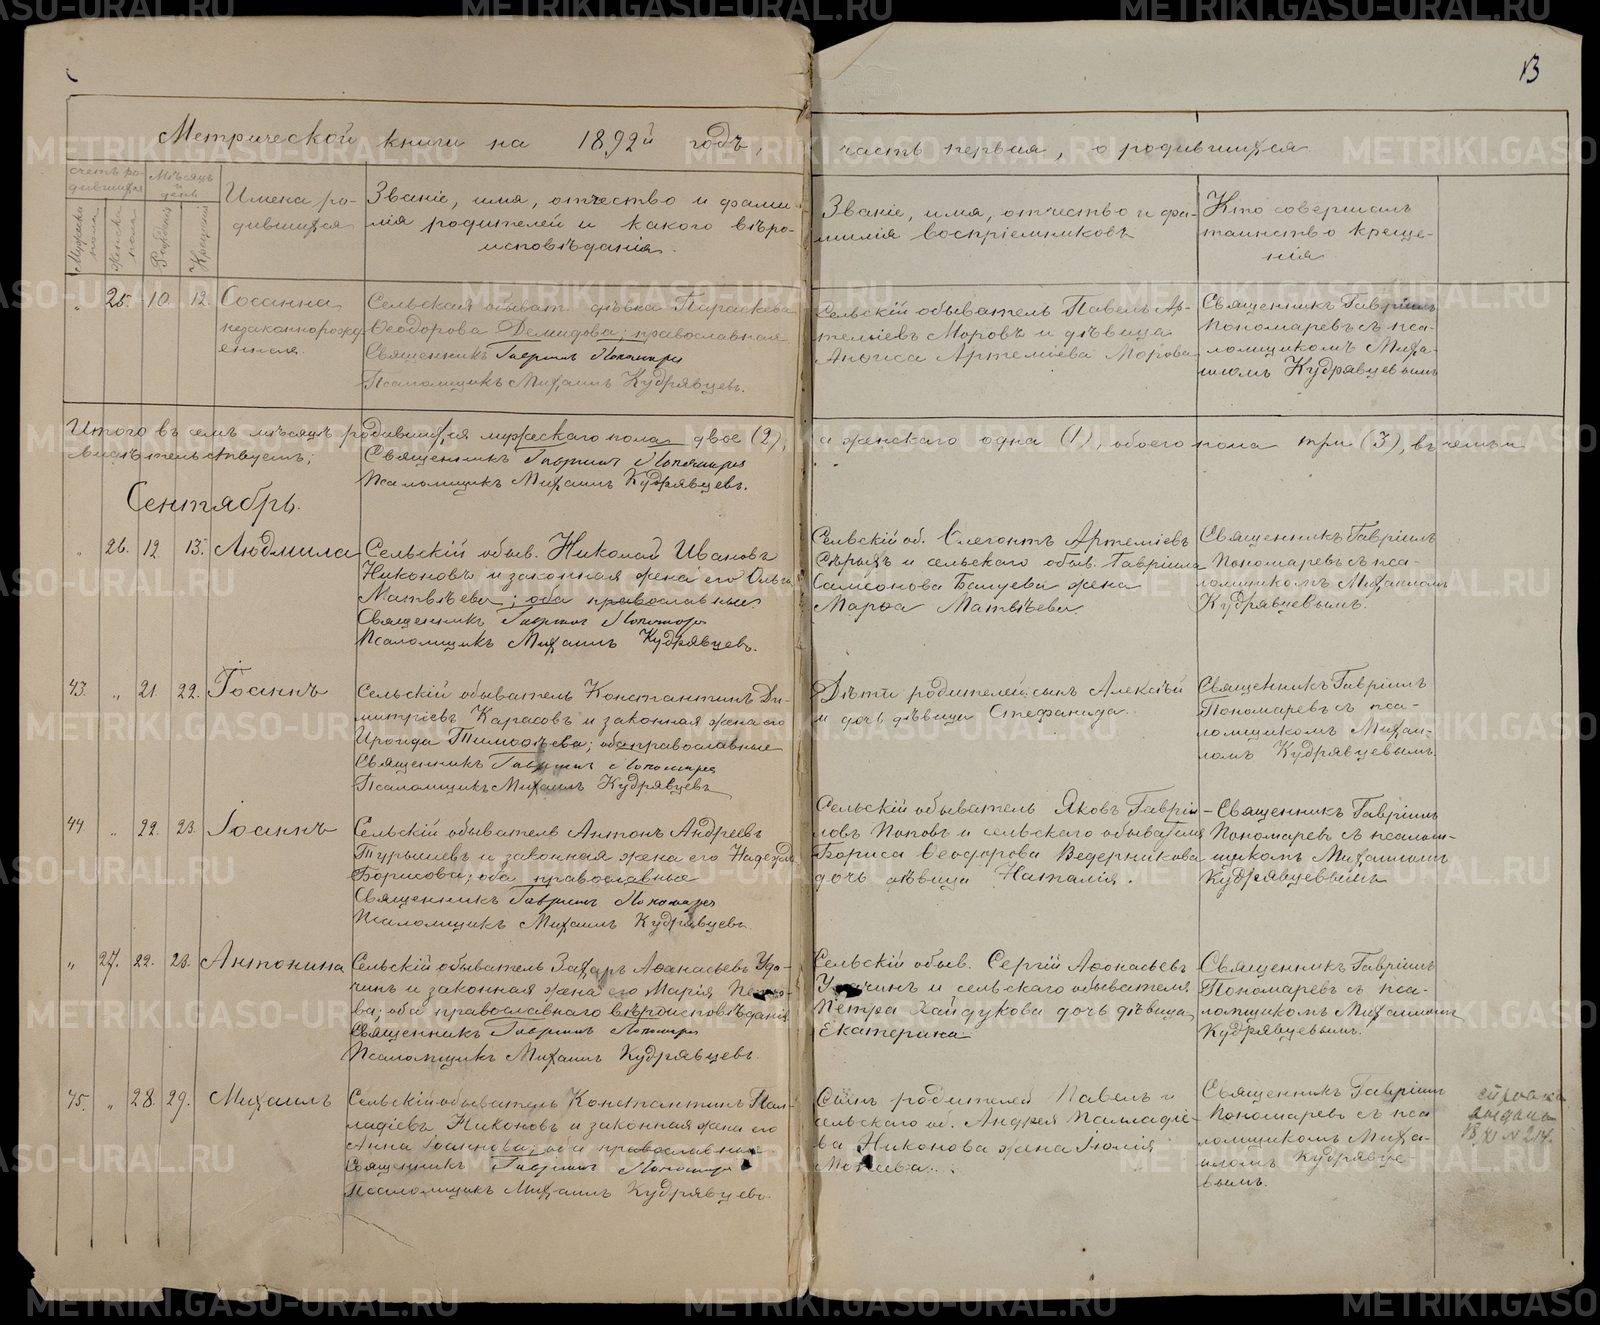 13
Метрической книги на 1892й годъ,
часть первая, о родившихся
счетъ ро-
дившихся
Мѣсяцъ
и
день
Мужеска
пола.
Женска
пола
Рожденія
Крещенія
Имена ро-
дившихся
Званіе, имя, отчество и фами-
лія родителей и какого вѣро-
исповѣданія.
Званіе, имя, отчество и фа-
милія воспріемниковъ
Кто совершалъ
таинство креще-
нія
„ 25. 10. 12. Сосанна
незаконнорожд
енная.
Сельская обыват. дѣвка Параскева
Ѳеодорова Демидова; православная
Священникъ Гавріилъ Пономарев
Псаломщикъ Михаилъ Кудрявцевъ.
Сельскій обыватель Павелъ Ар-
темьевъ Моровъ и дѣвица
Анфиса Артеміева Морова
Священникъ Гавріилъ
Пономаревъ съ пса-
ломщикомъ Миха-
иломъ Кудрявцевымъ
Итого въ семъ мѣсяцѣ родившихся мужескаго пола двое (2),
а женскаго одна (1), обоего пола три (3), въ чемъ и
свидѣтельствуемъ;
Священникъ Гавріилъ Пономарев
Псаломщикъ Михаилъ Кудрявцевъ.
Сентябрь.
„ 26. 12. 13. Людмила
Сельскій обыв. Николай Ивановъ
Никоновъ и законная жена его Ольга
Матвѣева; оба православные
Священникъ Гавріилъ Пономарев
Псаломщикъ Михаилъ Кудрявцевъ.
Сельскій об. Елегонтъ Артеміевъ
Сѣрыхъ и сельскаго обыв. Гавріила
Самсонова жена
Марѳа Матвѣева
Священникъ Гавріилъ
Пономаревъ съ пса-
ломщикомъ Михаиломъ
Кудрявцевымъ.
43. „ 21. 22. Іоаннъ
Сельскій обыватель Константинъ Ди-
митріевъ Карасовъ и законная жена его
Ироида Тимоѳѣева; оба православные
Священникъ Гавріилъ Пономарев
Псаломщикъ Михаилъ Кудрявцевъ
Дѣти родителей: сынъ Алексѣй
и дочь дѣвица Стефанида.
Священникъ Гавріилъ
Пономаревъ съ пса-
ломщикомъ Михаи-
ломъ Кудрявцевымъ.
44 „ 22. 23. Іоаннъ
Сельскій обыватель Антонъ Андреевъ
Турышевъ и законная жена его Надежда
Борисова; оба православные
Священникъ Гавріилъ Пономарев
Псаломщикъ Михаилъ Кудрявцевъ.
Сельскій обыватель Яковъ Гаврии-
ловъ Поповъ и сельскаго обывателя
Бориса Ѳеодорова Ведерникова
дочь дѣвица Наталія.
Священникъ Гавріилъ
Пономаревъ съ псалом-
щикомъ Михаиломъ
Кудрявцевымъ
„ 27. 22. 23. Антонина
Сельскій обыватель Захаръ Аѳанасьевъ Удо-
чинъ и законная жена его Марія Петро-
ва; оба православнаго вѣроисповѣданія
Священникъ Гавріилъ Пономарев
Псаломщикъ Михаилъ Кудрявцевъ.
Сельскій обыв. Сергій Аѳонасьевъ
Удочинъ и сельскаго обывателя
Петра Хайдукова дочь дѣвица
Екатерина
Священникъ Гавріилъ
Пономаревъ съ пса-
ломщикомъ Михаиломъ
Кудрявцевымъ.
45. „ 28. 29. Михаилъ
Сельскій обыватель Константинъ Пал-
ладіевъ Никоновъ и законная жена его
Анна Іоаннова; оба православные
Священникъ Гавріилъ Пономарев
Псаломщикъ Михаилъ Кудрявцевъ.
Сынъ родителей Павелъ и
сельскаго об. Андрея Палладіе-
ва Никонова жена Іюлія
Мокеева.
Священникъ Гавріилъ
Пономаревъ съ пса
ломщикомъ Миха-
иломъ Кудрявце
вымъ.
справка
выдана